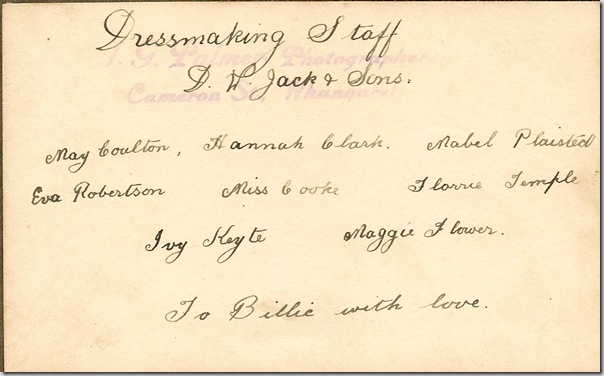 Dressmaking Staff
T. G. Palmer, Photographer
D. W. Jack & Sons.
Cameron St., Whangarei
May Coulton, Hannah Clark. Mabel Plaisted
Eva Robertson Miss Cooke Florrie Temple
Ivy Keyte Maggie Flower.
To Billie with love.